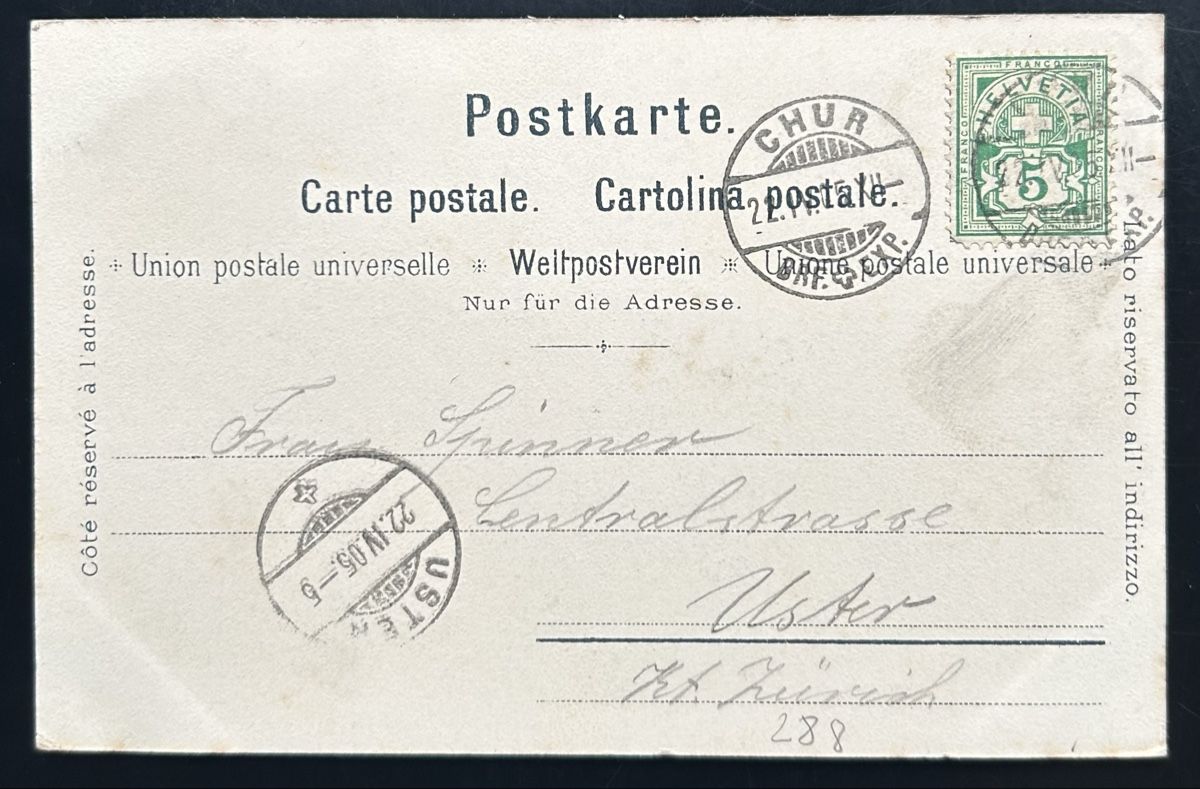 Postkarte.
Carte postale. Cartolina postale.
Union postale universelle Weltpostverein Unione postale universale
Nur für die Adresse.
Côté réservé à l'adresse.
Lato riservato all' indirizzo.
FRANCO
FRANCO
FRANCO
HELVETIA
5
CHUR
22.IV.05.XII–
BRF. EXP.
22.IV. XII–
EXP.
Frau Spinner
Centralstrasse
Uster
Kt. Zürich
288
22.IV.05.–5
USTER